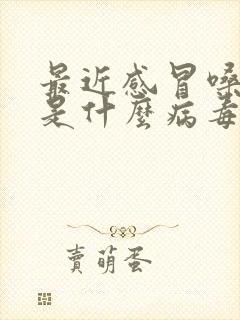 最近感冒嗓
是什麼病毒
賣萌蛋